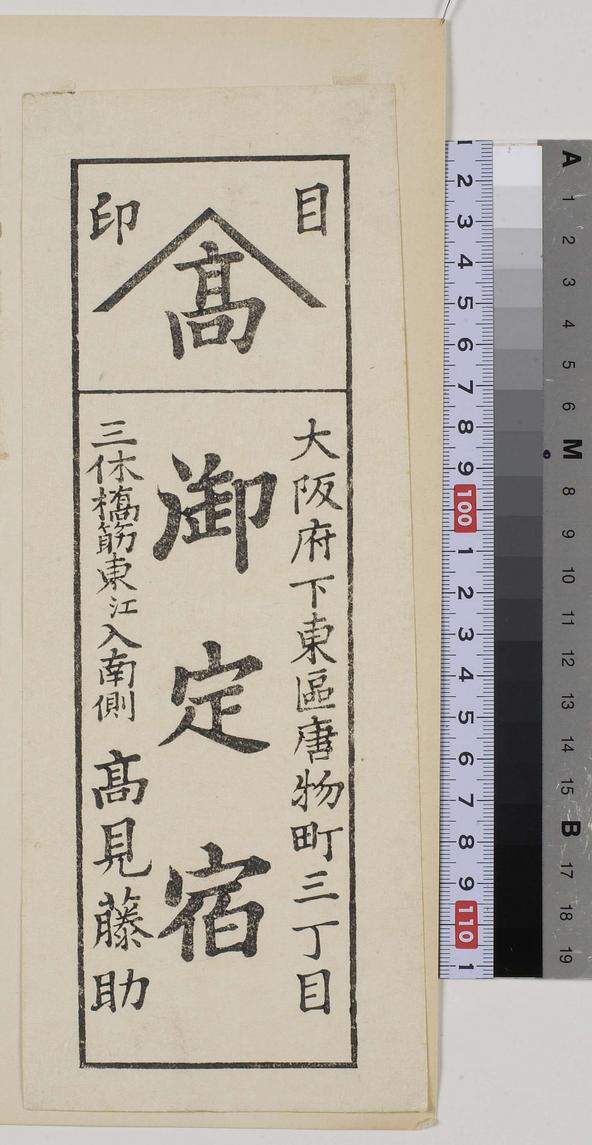 目印
髙
大阪府下東區唐物町三丁目
御定宿
三休橋筋東江入南側 髙見藤助
1 2 3 4 5 6 7 8 9 100 1 2 3 4 5 6 7 8 9 110 1
A 1 2 3 4 5 6 M 8 9 10 11 12 13 14 15 B 17 18 19